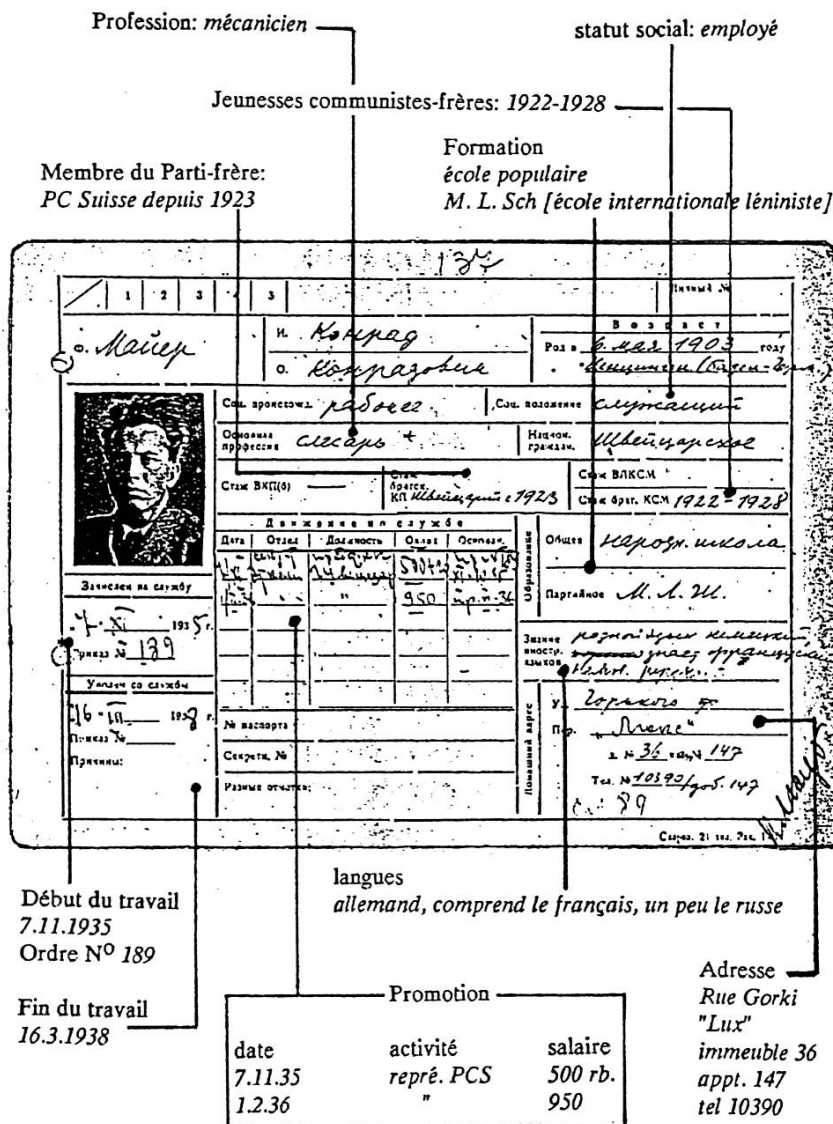 Profession: mécanicien
statut social: employé
Jeunesses communistes-frères: 1922-1928
Formation
école populaire
M. L. Sch [école internationale léniniste]
Membre du Parti-frère:
PC Suisse depuis 1923
1 2 3 4 5
Личный №
Возраст
Ф. Майер
И. Конрад
Род в 6 мая 1903 году
О. Конрадович
Соц. происхожд. рабочее
Соц. положение служащий
Основная профессия слесарь
Национ. граждан. Швейцарское
Стаж ВКП(б) —
Стаж братск. КП Швейцарии с 1923
Стаж ВЛКСМ
Стаж брат. КСМ 1922-1928
Движение по службе
Дата Отдел Должность Оклад Основан.
500
" 950
Образование
Общее народн. школа
Партийное М. Л. Ш.
Зачислен на службу
7 XI 1935 г.
Приказ № 189
Знание иностр. языков
родной язык немецкий
знает французский
Уволен со службы
16 III 1938 г.
Приказ №
Причины:
№ паспорта
Секретн. №
Разные отметки:
Домашний адрес
Ул. Горького
"Люкс"
д. № 36 кв. № 147
Тел. № 10390/доб. 147
89
Début du travail
7.11.1935
Ordre Nº 189
Fin du travail
16.3.1938
langues
allemand, comprend le français, un peu le russe
Promotion
date activité salaire
7.11.35 repré. PCS 500 rb.
1.2.36 " 950
Adresse
Rue Gorki
"Lux"
immeuble 36
appt. 147
tel 10390